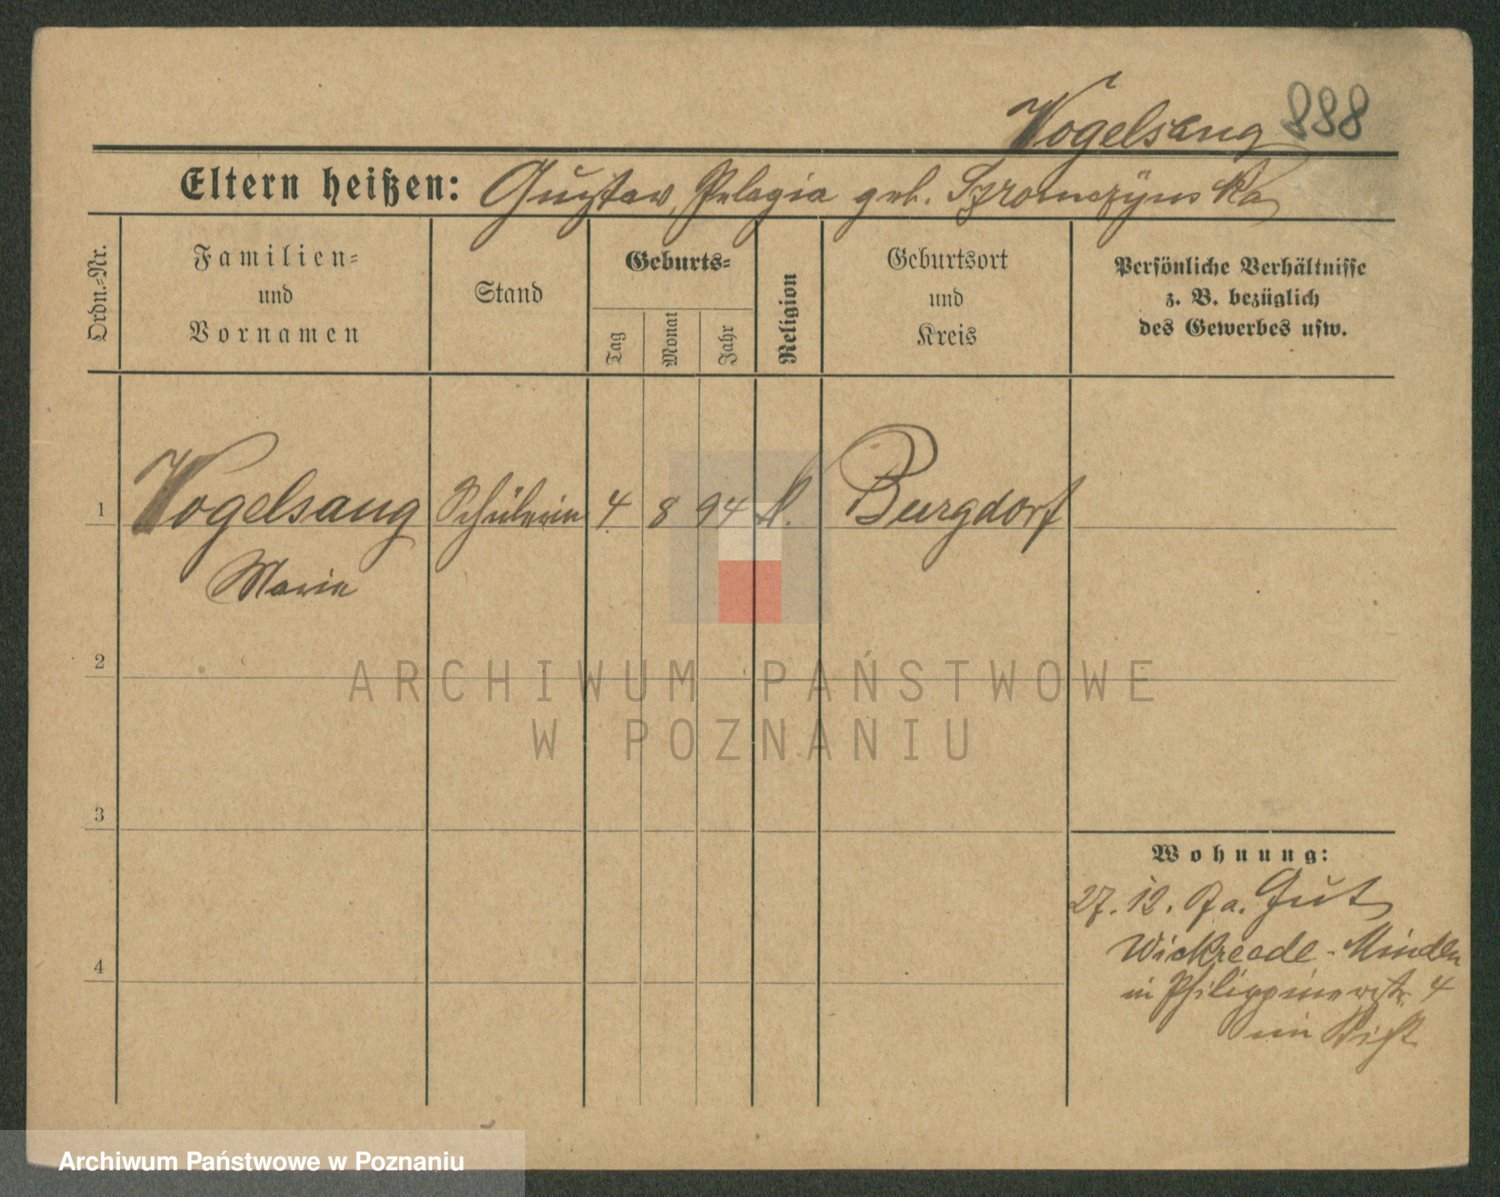 Vogelsang 888
Eltern heißen: Gustav, Pelagia geb. Szromczyńska
Ordn.-Nr.
Familien-
und
Vornamen
Stand
Geburts-
Tag
Monat
Jahr
Religion
Geburtsort
und
Kreis
Persönliche Verhältnisse
z. B. bezüglich
des Gewerbes usw.
1 Vogelsang Schülerin 4 8 94 k. Burgdorf
Marie
2
ARCHIWUM PAŃSTWOWE
W POZNANIU
3
Wohnung:
27. 12. 07 a. Gut
Wickreede-Minden
in Philippinerstr. 4
im Stift
4
Archiwum Państwowe w Poznaniu